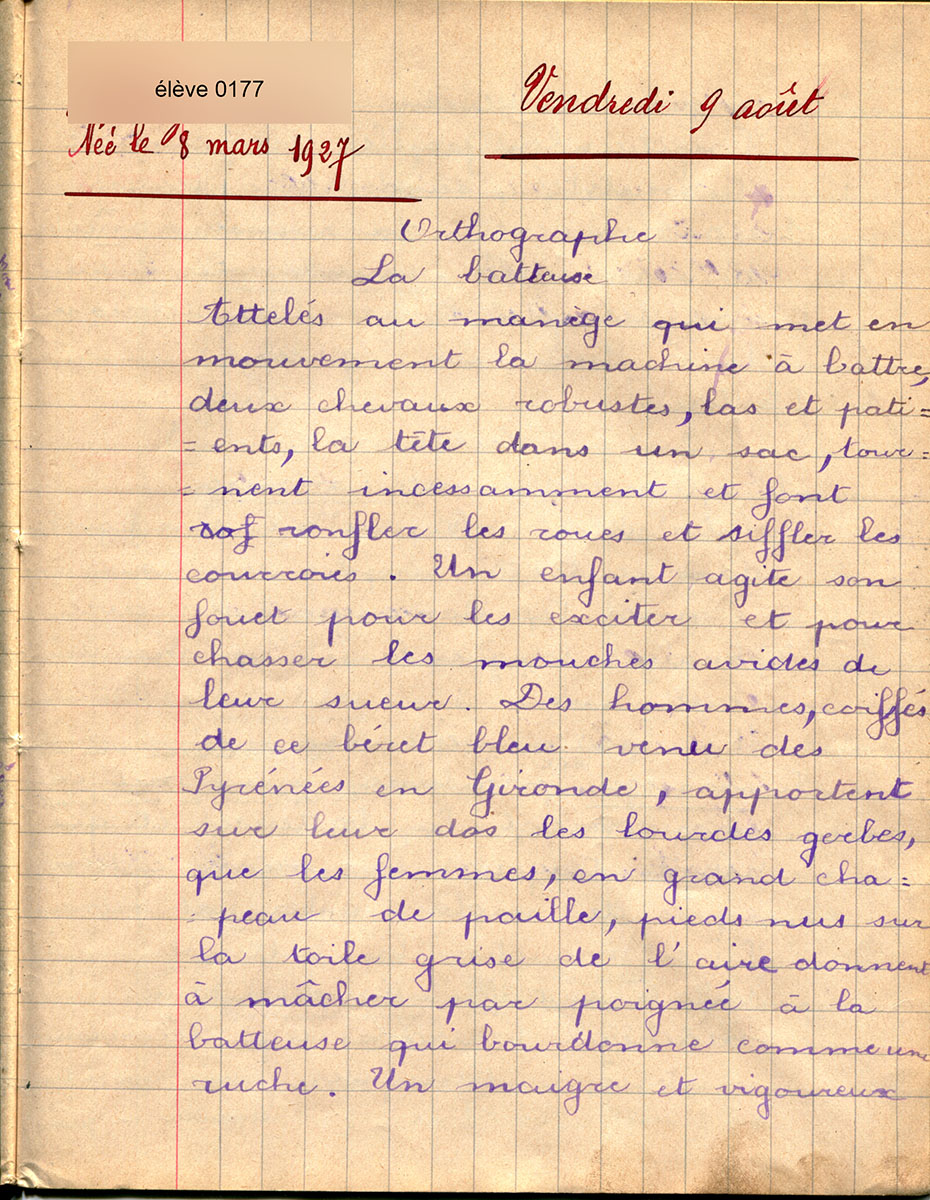 élève 0177
Vendredi 9 août
Néé le 8 mars 1927
Orthographe
La batteuse
Attelés au manège qui met en
mouvement la machine à battre,
deux chevaux robustes, las et pati=
=ents, la tête dans un sac, tour=
=nent incessamment et font
rof ronfler les roues et siffler les
courroies. Un enfant agite son
fouet pour les exciter et pour
chasser les mouches avides de
leur sueur. Des hommes, coiffés
de ce béret bleu venu des
Pyrénées en Gironde, apportent
sur leur dos les lourdes gerbes,
que les femmes, en grand cha=
=peau de paille, pieds nus sur
la toile grise de l'aire donnent
à mâcher par poignée à la
batteuse qui bourdonne comme une
ruche. Un maigre et vigoureux